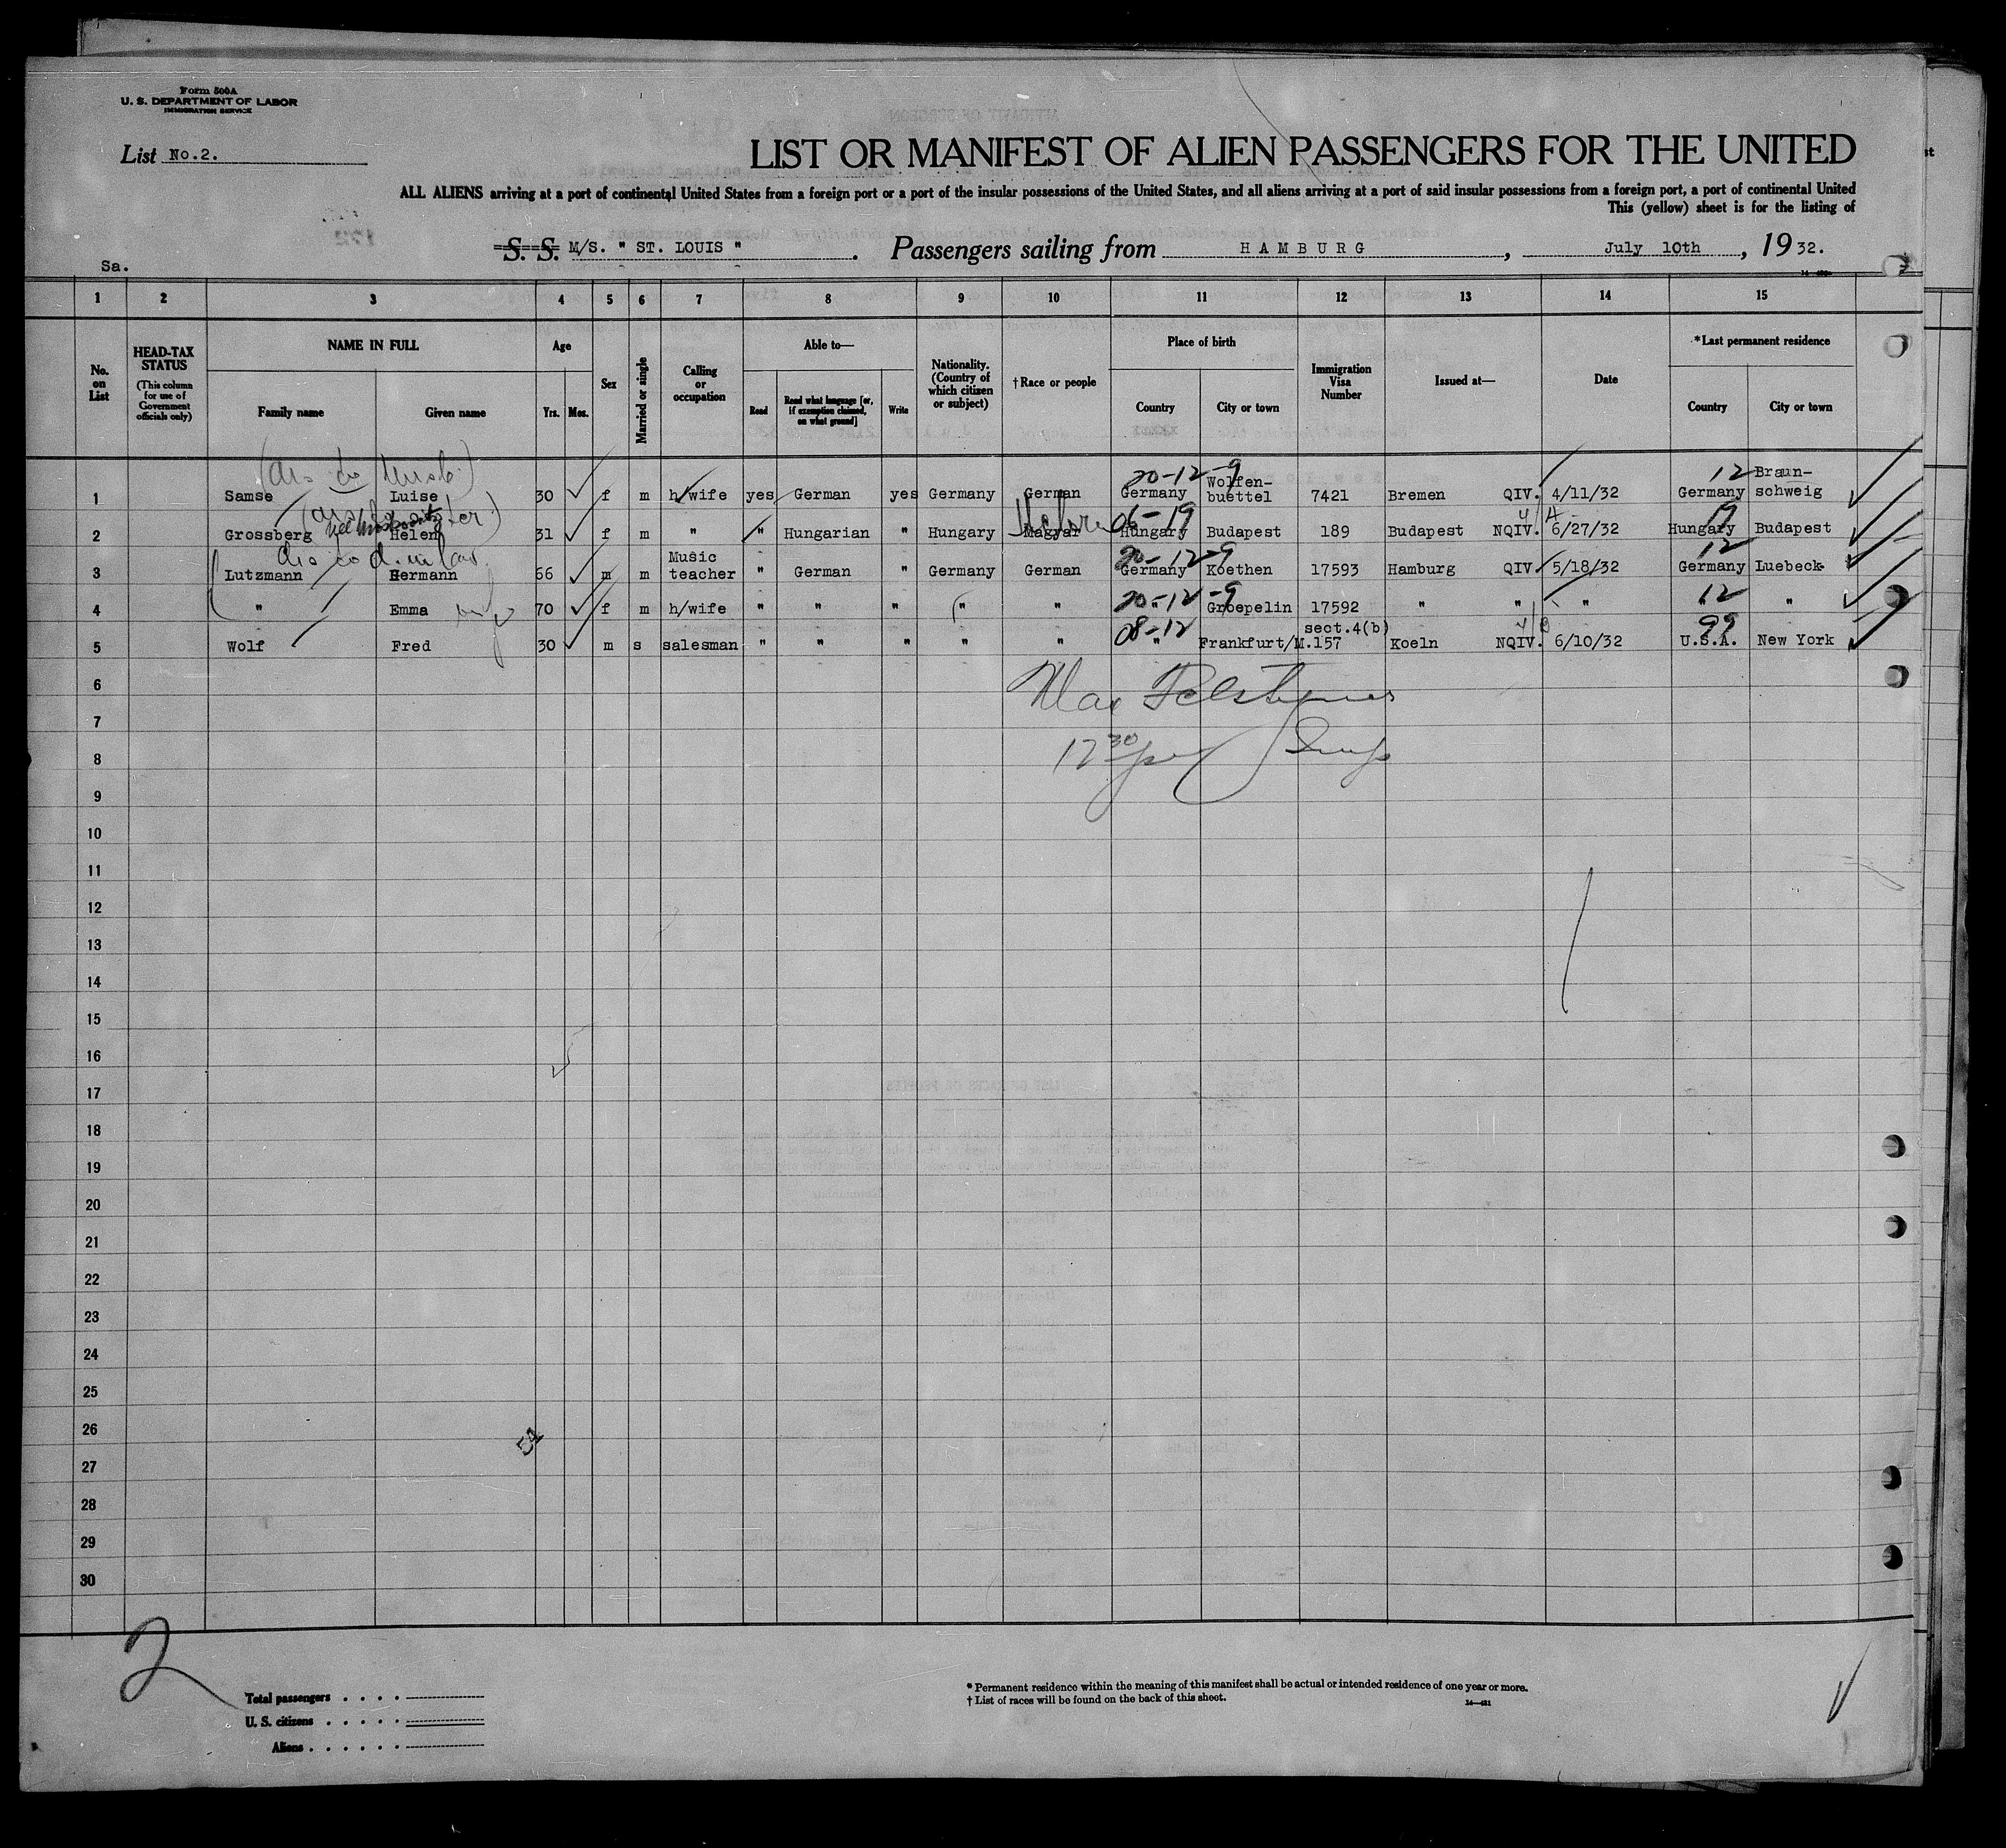 Form 500A
U. S. DEPARTMENT OF LABOR
IMMIGRATION SERVICE
List No.2.
LIST OR MANIFEST OF ALIEN PASSENGERS FOR THE UNITED
ALL ALIENS arriving at a port of continental United States from a foreign port or a port of the insular possessions of the United States, and all aliens arriving at a port of said insular possessions from a foreign port, a port of continental United
This (yellow) sheet is for the listing of
S. S. M/S. " ST. LOUIS " . Passengers sailing from HAMBURG , July 10th , 1932.
Sa.
1 2 3 4 5 6 7 8 9 10 11 12 13 14 15
No. on List
HEAD-TAX STATUS (This column for use of Government officials only)
NAME IN FULL Family name Given name
Age Yrs. Mos.
Sex
Married or single
Calling or occupation
Able to— Read Read what language [or, if exemption claimed, on what ground] Write
Nationality. (Country of which citizen or subject)
†Race or people
Place of birth Country City or town
Immigration Visa Number
Issued at—
Date
*Last permanent residence Country City or town
20-12-9 12
1 Samse Luise 30 f m h/wife yes German yes Germany German Germany Wolfen-buettel 7421 Bremen QIV. 4/11/32 Germany Braun-schweig
Hebrew 06-19 19
2 Grossberg Helen 31 f m " " Hungarian " Hungary Magyar Hungary Budapest 189 Budapest NQIV. 6/27/32 Hungary Budapest
20-12-9 12
3 Lutzmann Hermann 66 m m Music teacher " German " Germany German Germany Koethen 17593 Hamburg QIV 5/18/32 Germany Luebeck
20-12-9 12
4 " Emma 70 f m h/wife " " " " " " Groepelin 17592 " " " " "
08-12 99
5 Wolf Fred 30 m s salesman " " " " " " Frankfurt/M. sect.4(b) 157 Koeln NQIV. 6/10/32 U.S.A. New York
6
7
Max
12 30
8
9
10
11
12
13
14
15
16
17
18
19
20
21
22
23
24
25
26
27
28
29
30
2
Total passengers . . . .
U. S. citizens . . . . .
Aliens . . . . . .
* Permanent residence within the meaning of this manifest shall be actual or intended residence of one year or more.
† List of races will be found on the back of this sheet.